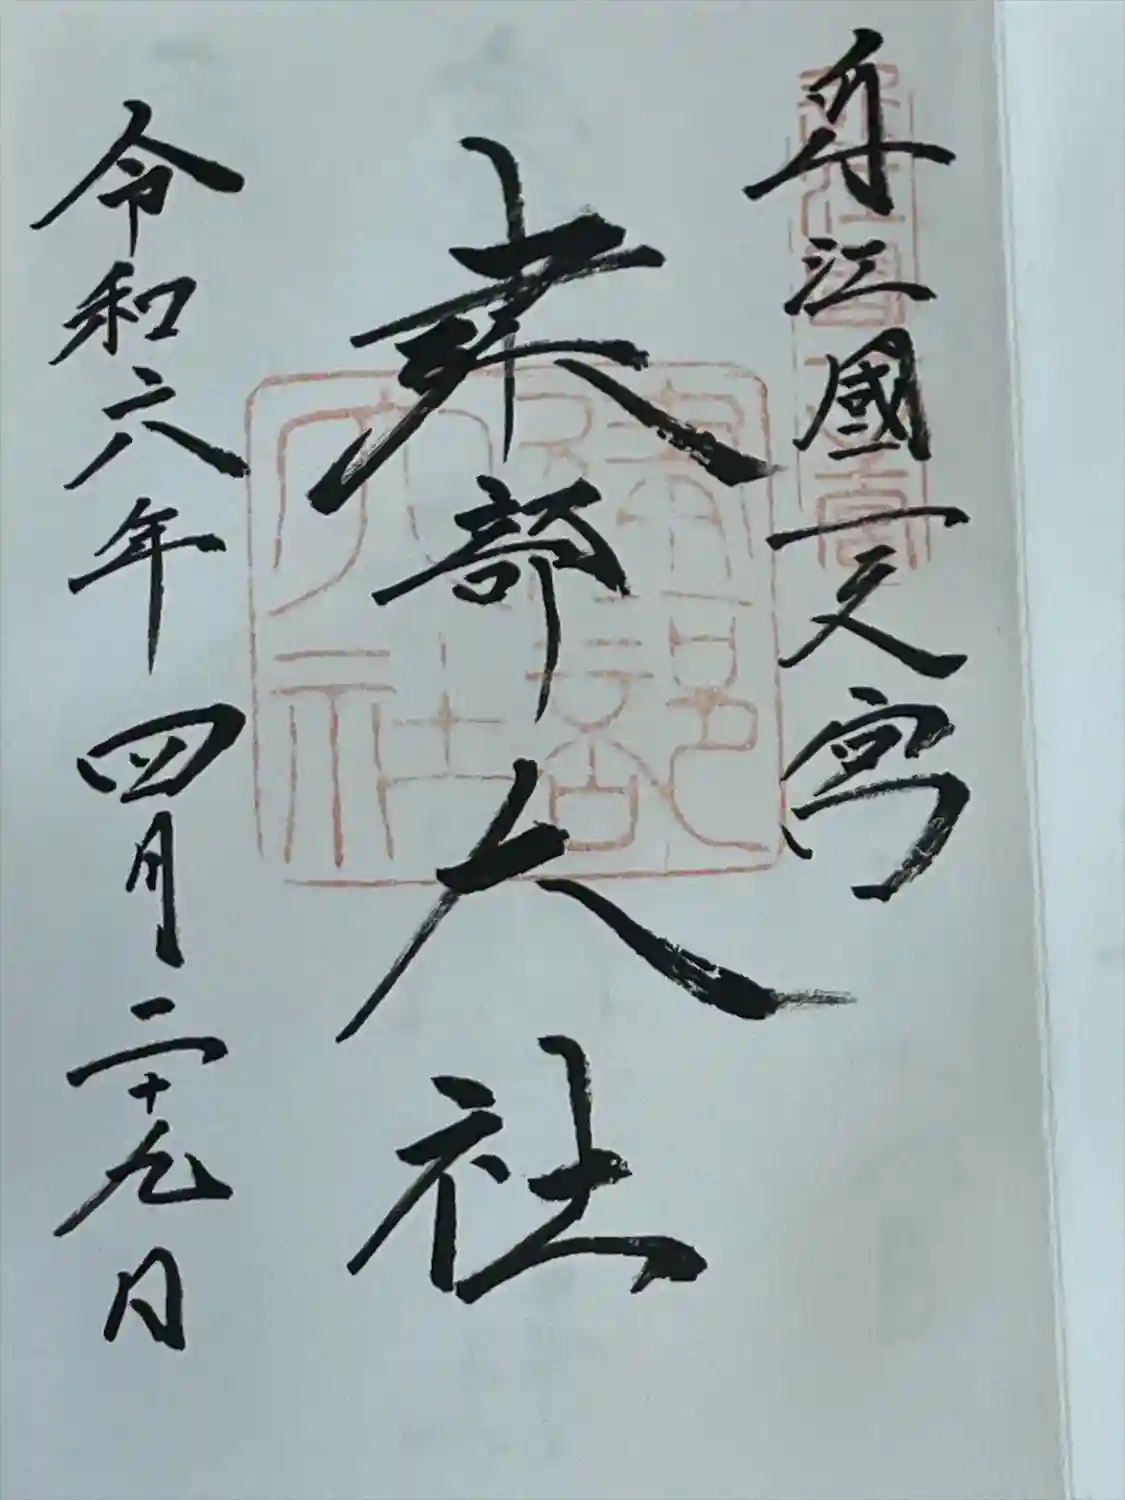 近江國一之宮
建部大社
令和六年四月二十九日